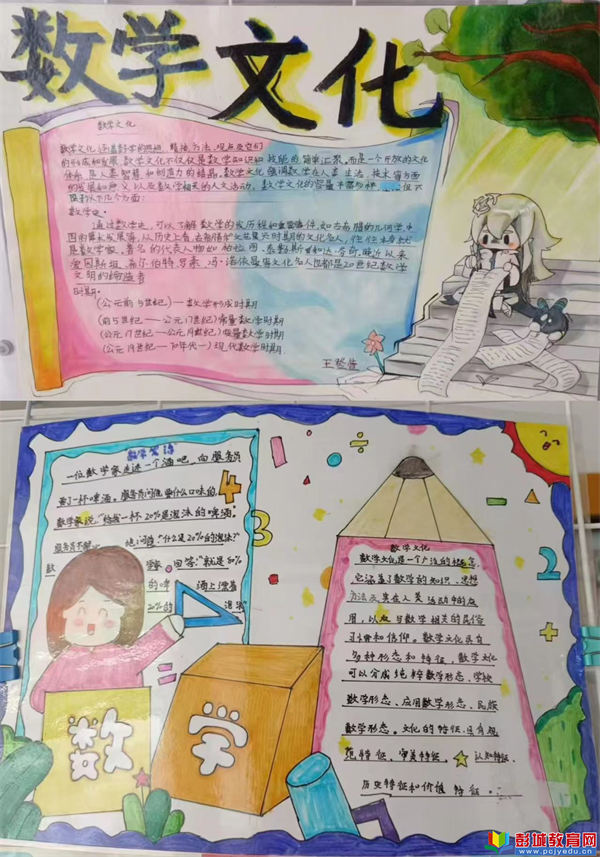 数学文化
数学文化
数学文化是指数学的思想、精神、方法、观点及它们
的形成和发展.数学文化不仅仅是数学知识和技能的简单汇聚.而是一个开放的文化
体系.是人类智慧和创造力的结晶.数学文化强调数学在人类生活、技术等方面
的发展和意义以及数学相关的人文活动。数学文化的
以下几个方面:
数学史。
通过数学史,可以了解数学的发展历程和重要事件.如古希腊的几何学.中
国的算术发展等.从历史上看.古希腊和文艺复兴时期的文化名人,往往本身就
是数学家。著名的代表人物如柏拉图、达·芬奇.晚近以来
爱因斯坦.希尔伯特.罗素.冯·诺依曼等文化名人也都是20世纪数学
文明的缔造者
时期。
(公元前5世纪)—数学形成时期
(前5世纪——公元17世纪)常量数学时期
(公元17世纪——公元19世纪)变量数学时期
(公元19世纪—70年代—)现代数学时期
数学笑话
一位数学家走进一个酒吧,向服务员
要了一杯啤酒。服务员问他要什么口味的,
数学家说:"给我一杯20%是泡沫的啤酒。"
服务员不解 他问道:"什么是20%的泡沫?"
数 回答:"就是80%
的啤 酒上漂着
20%的 泡沫"
4
3
2
数学
数学文化
数学文化是一个广泛的概念.
它涵盖了数学的知识、思想
方法及其在人类活动中的应
用,以及与数学相关的民俗
习惯和信仰。数学文化具有
多种形态和特征,数学文化
可以分成纯粹数学形态、学校
数学形态、应用数学形态、民族
数学形态。文化的特征.还有思
想特征、审美特征、认知特征、
历史特征和价值特征.....
彭城教育网
www.pcjyedu.cn